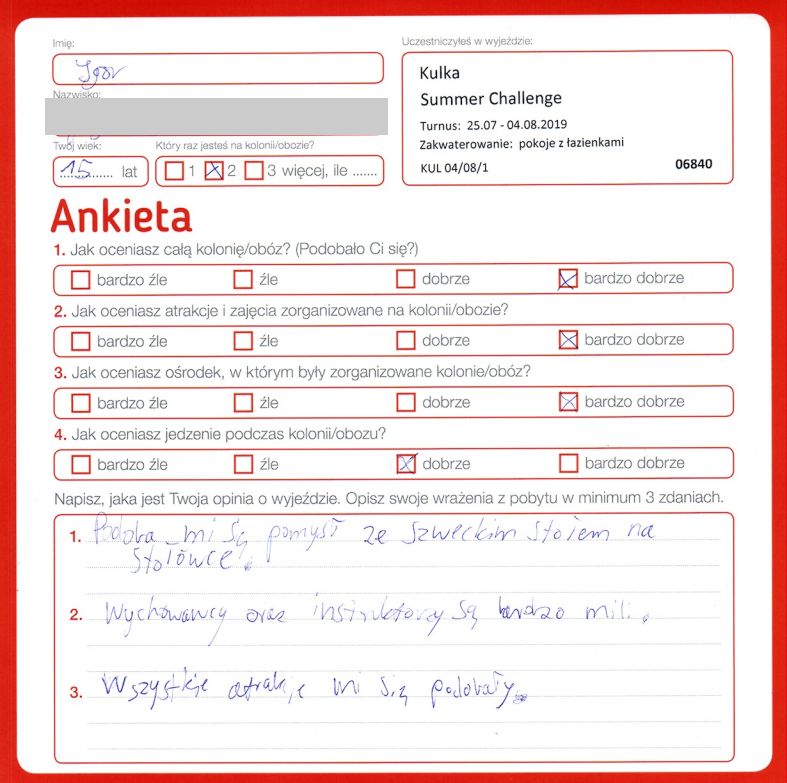 Imię:
Igor
Nazwisko:
Twój wiek:
15 lat
Który raz jesteś na kolonii/obozie?
1 2 3 więcej, ile .......
Uczestniczyłeś w wyjeździe:
Kulka
Summer Challenge
Turnus: 25.07 - 04.08.2019
Zakwaterowanie: pokoje z łazienkami
KUL 04/08/1 06840
Ankieta
1. Jak oceniasz całą kolonię/obóz? (Podobało Ci się?)
bardzo źle źle dobrze bardzo dobrze
2. Jak oceniasz atrakcje i zajęcia zorganizowane na kolonii/obozie?
bardzo źle źle dobrze bardzo dobrze
3. Jak oceniasz ośrodek, w którym były zorganizowane kolonie/obóz?
bardzo źle źle dobrze bardzo dobrze
4. Jak oceniasz jedzenie podczas kolonii/obozu?
bardzo źle źle dobrze bardzo dobrze
Napisz, jaka jest Twoja opinia o wyjeździe. Opisz swoje wrażenia z pobytu w minimum 3 zdaniach.
1. Podoba mi się pomysł ze szweckim stołem na
stołówce.
2. Wychowawcy oraz instruktorzy są bardzo mili.
3. Wszystkie atrakcje mi się podobały.